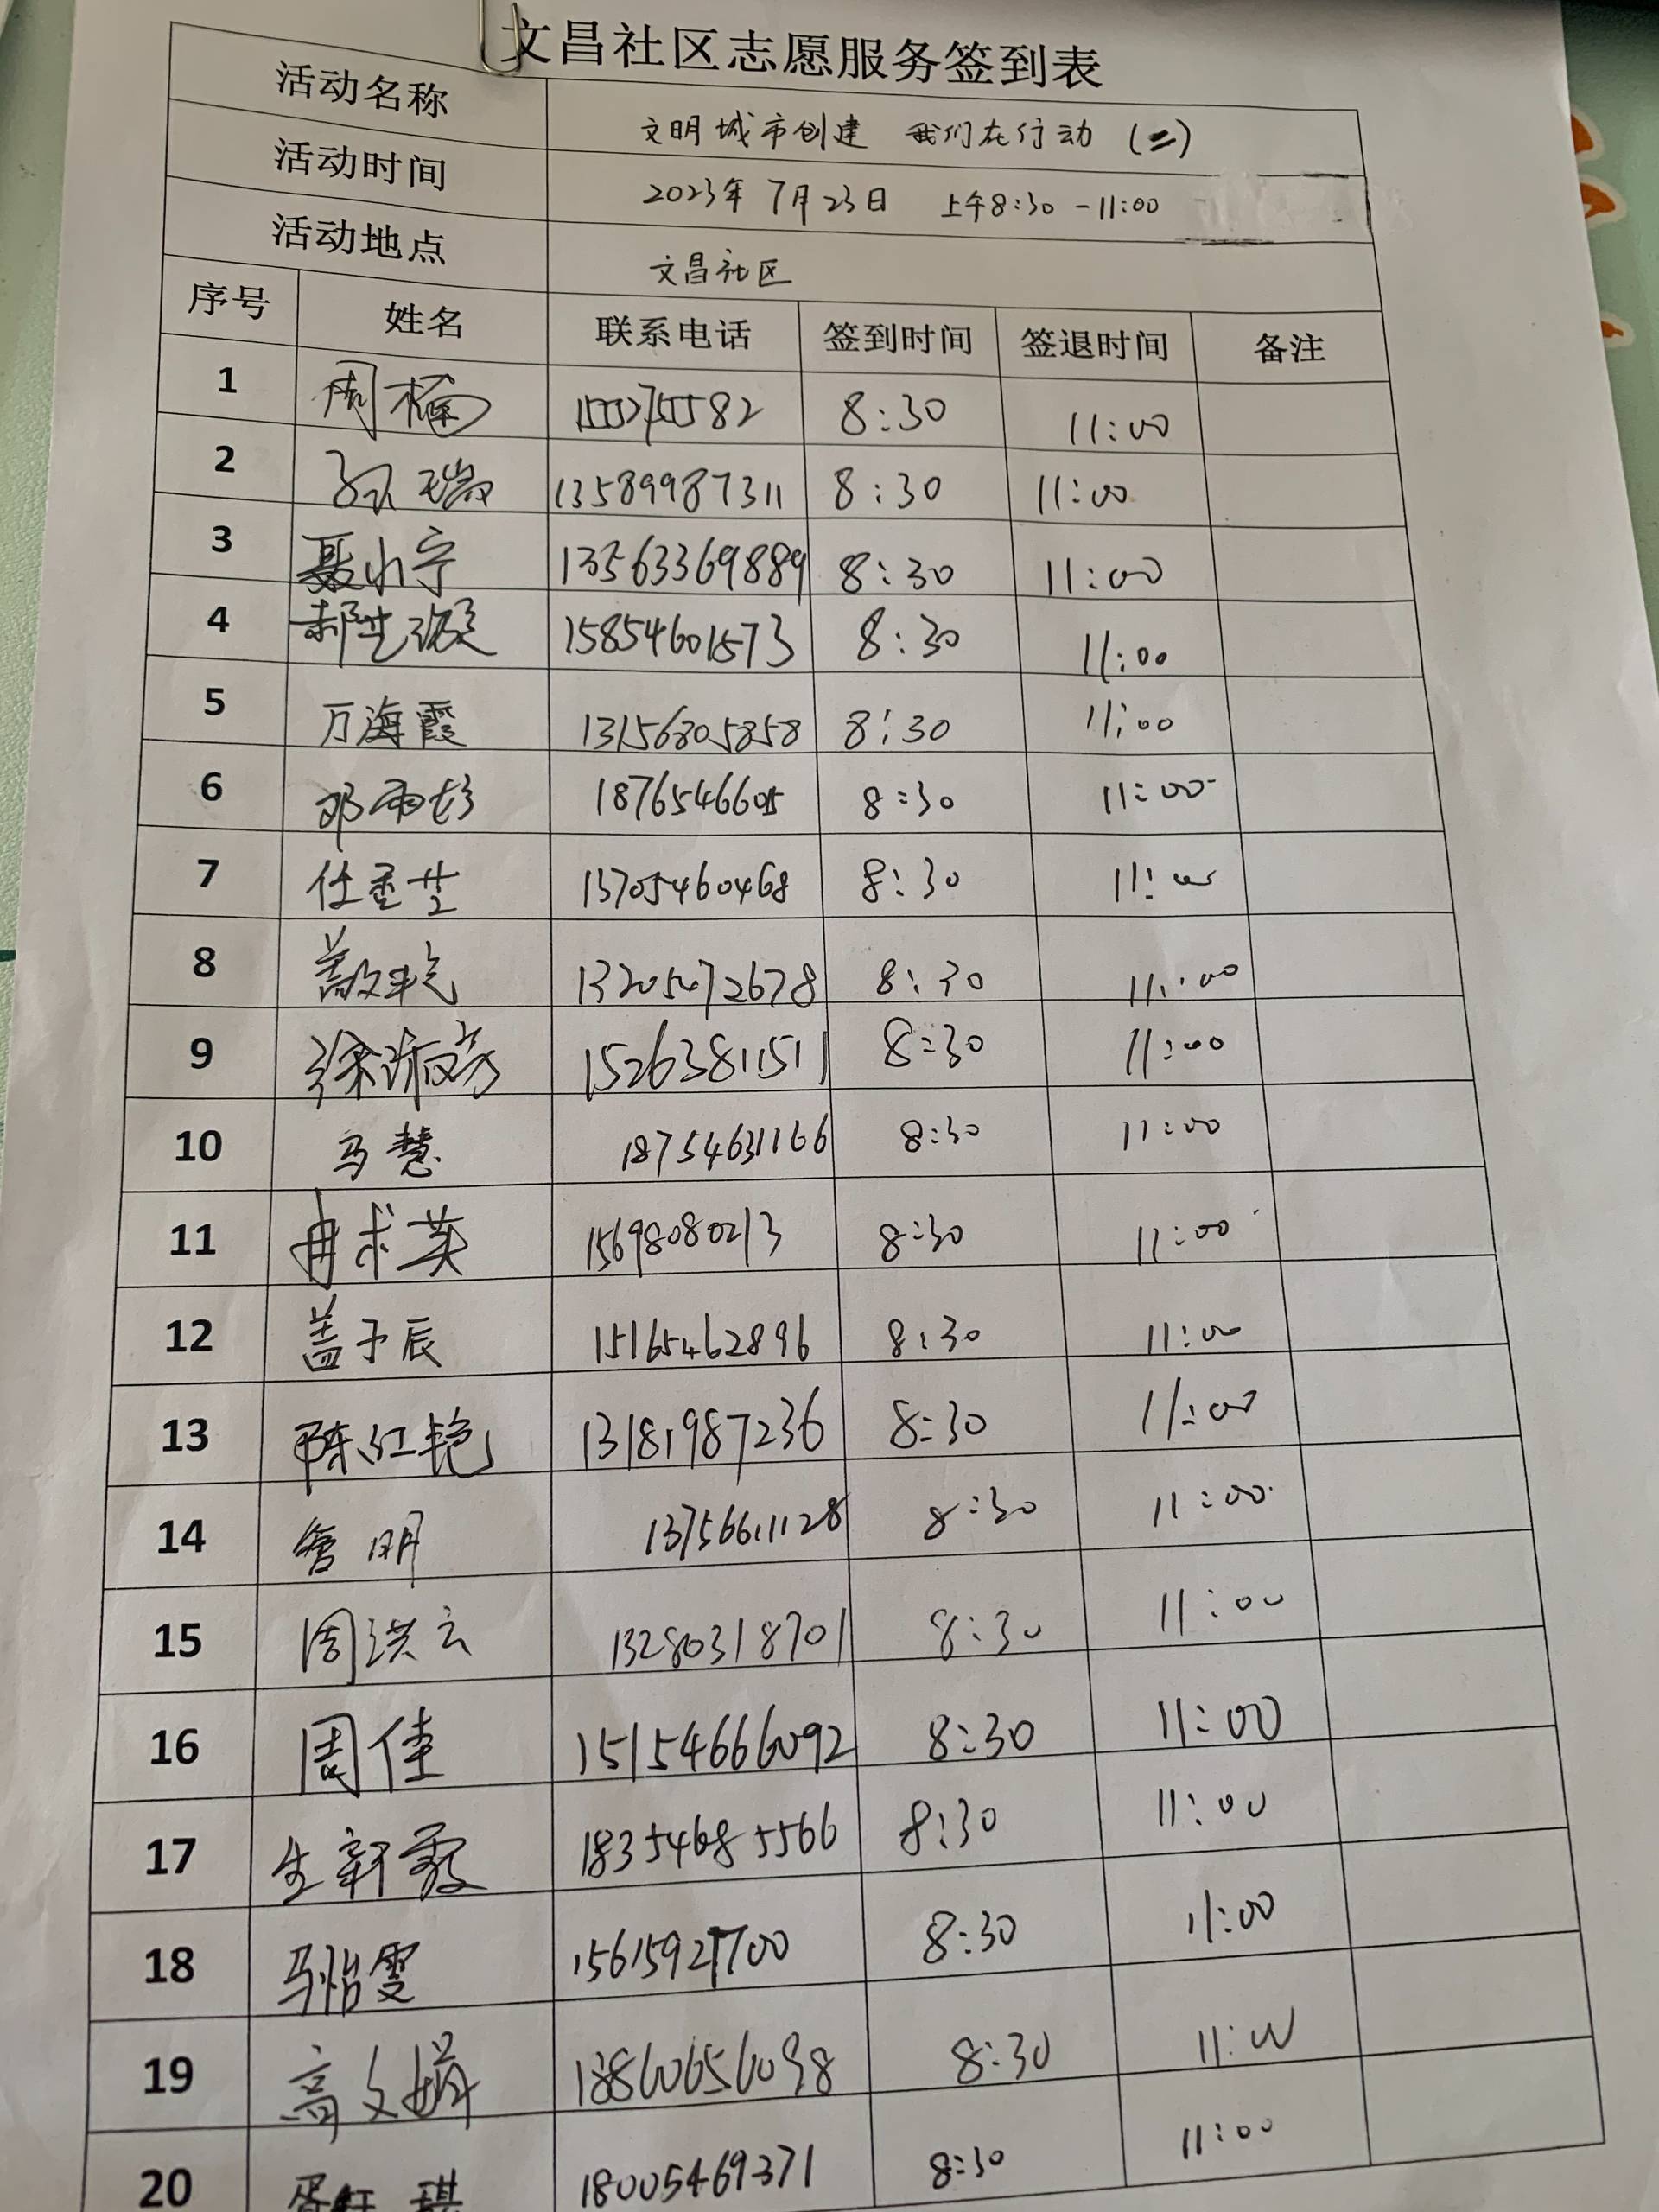 文昌社区志愿服务签到表
活动名称 文明城市创建 我们在行动 (二)
活动时间 2023年7月23日 上午8:30-11:00
活动地点 文昌社区
序号 姓名 联系电话 签到时间 签退时间 备注
1 周楠 8:30 11:00
2 孙瑞 13589987311 8:30 11:00
3 聂小宁 13563369889 8:30 11:00
4 15854601573 8:30 11:00
5 万海霞 13156805858 8:30 11:00
6 邓雨杉 8:30 11:00
7 13705460468 8:30 11:00
8 13205472678 8:30 11:00
9 15263811511 8:30 11:00
10 马慧 18754631166 8:30 11:00
11 冉求英 15698080213 8:30 11:00
12 盖予辰 15165462896 8:30 11:00
13 陈红艳 13181987236 8:30 11:00
14 管明 13756611128 8:30 11:00
15 周洪云 13280318701 8:30 11:00
16 周佳 15154666092 8:30 11:00
17 生新霞 18354685566 8:30 11:00
18 马怡雯 15615921700 8:30 11:00
19 高文娟 8:30 11:00
20 18005469371 8:30 11:00